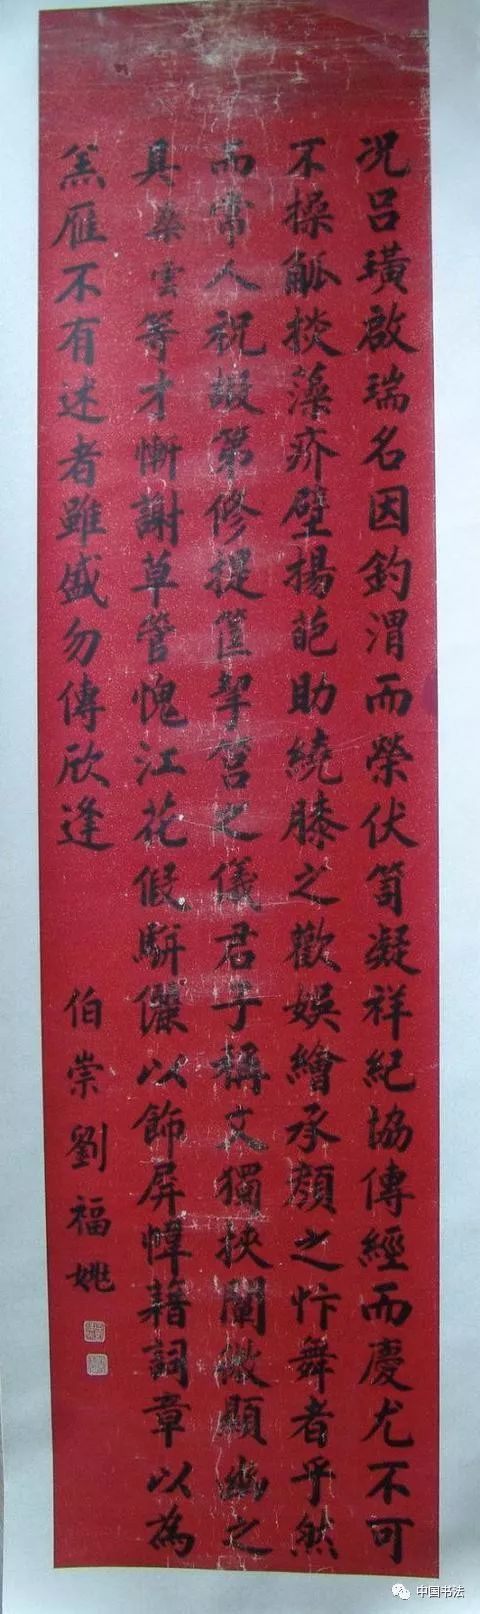 況呂璜啟瑞名因釣渭而榮伏笥凝祥紀協傳經而慶尤不可
不操觚掞藻疥壁揚葩助繞膝之歡娛繪承顏之忭舞者乎然
而常人祝嘏第修提筐挈筥之儀君子稱文獨挾闡微顯幽之
具藥雲等才慚謝草管愧江花假駢儷以飾屏幛藉詞章以為
羔雁不有述者雖盛勿傳欣逢
伯崇劉福姚
中国书法